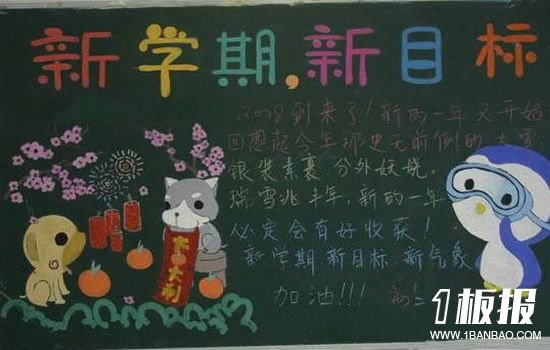 新学期,新目标
2008到来了！新的一年又开始
回想起今年那史无前例的大雪
银装素裹 分外妖娆。
瑞雪兆丰年，新的一年
必定会有好收获！
新学期 新目标 新气象
加油!!!
大利
1板报
WWW.1BANBAO.COM